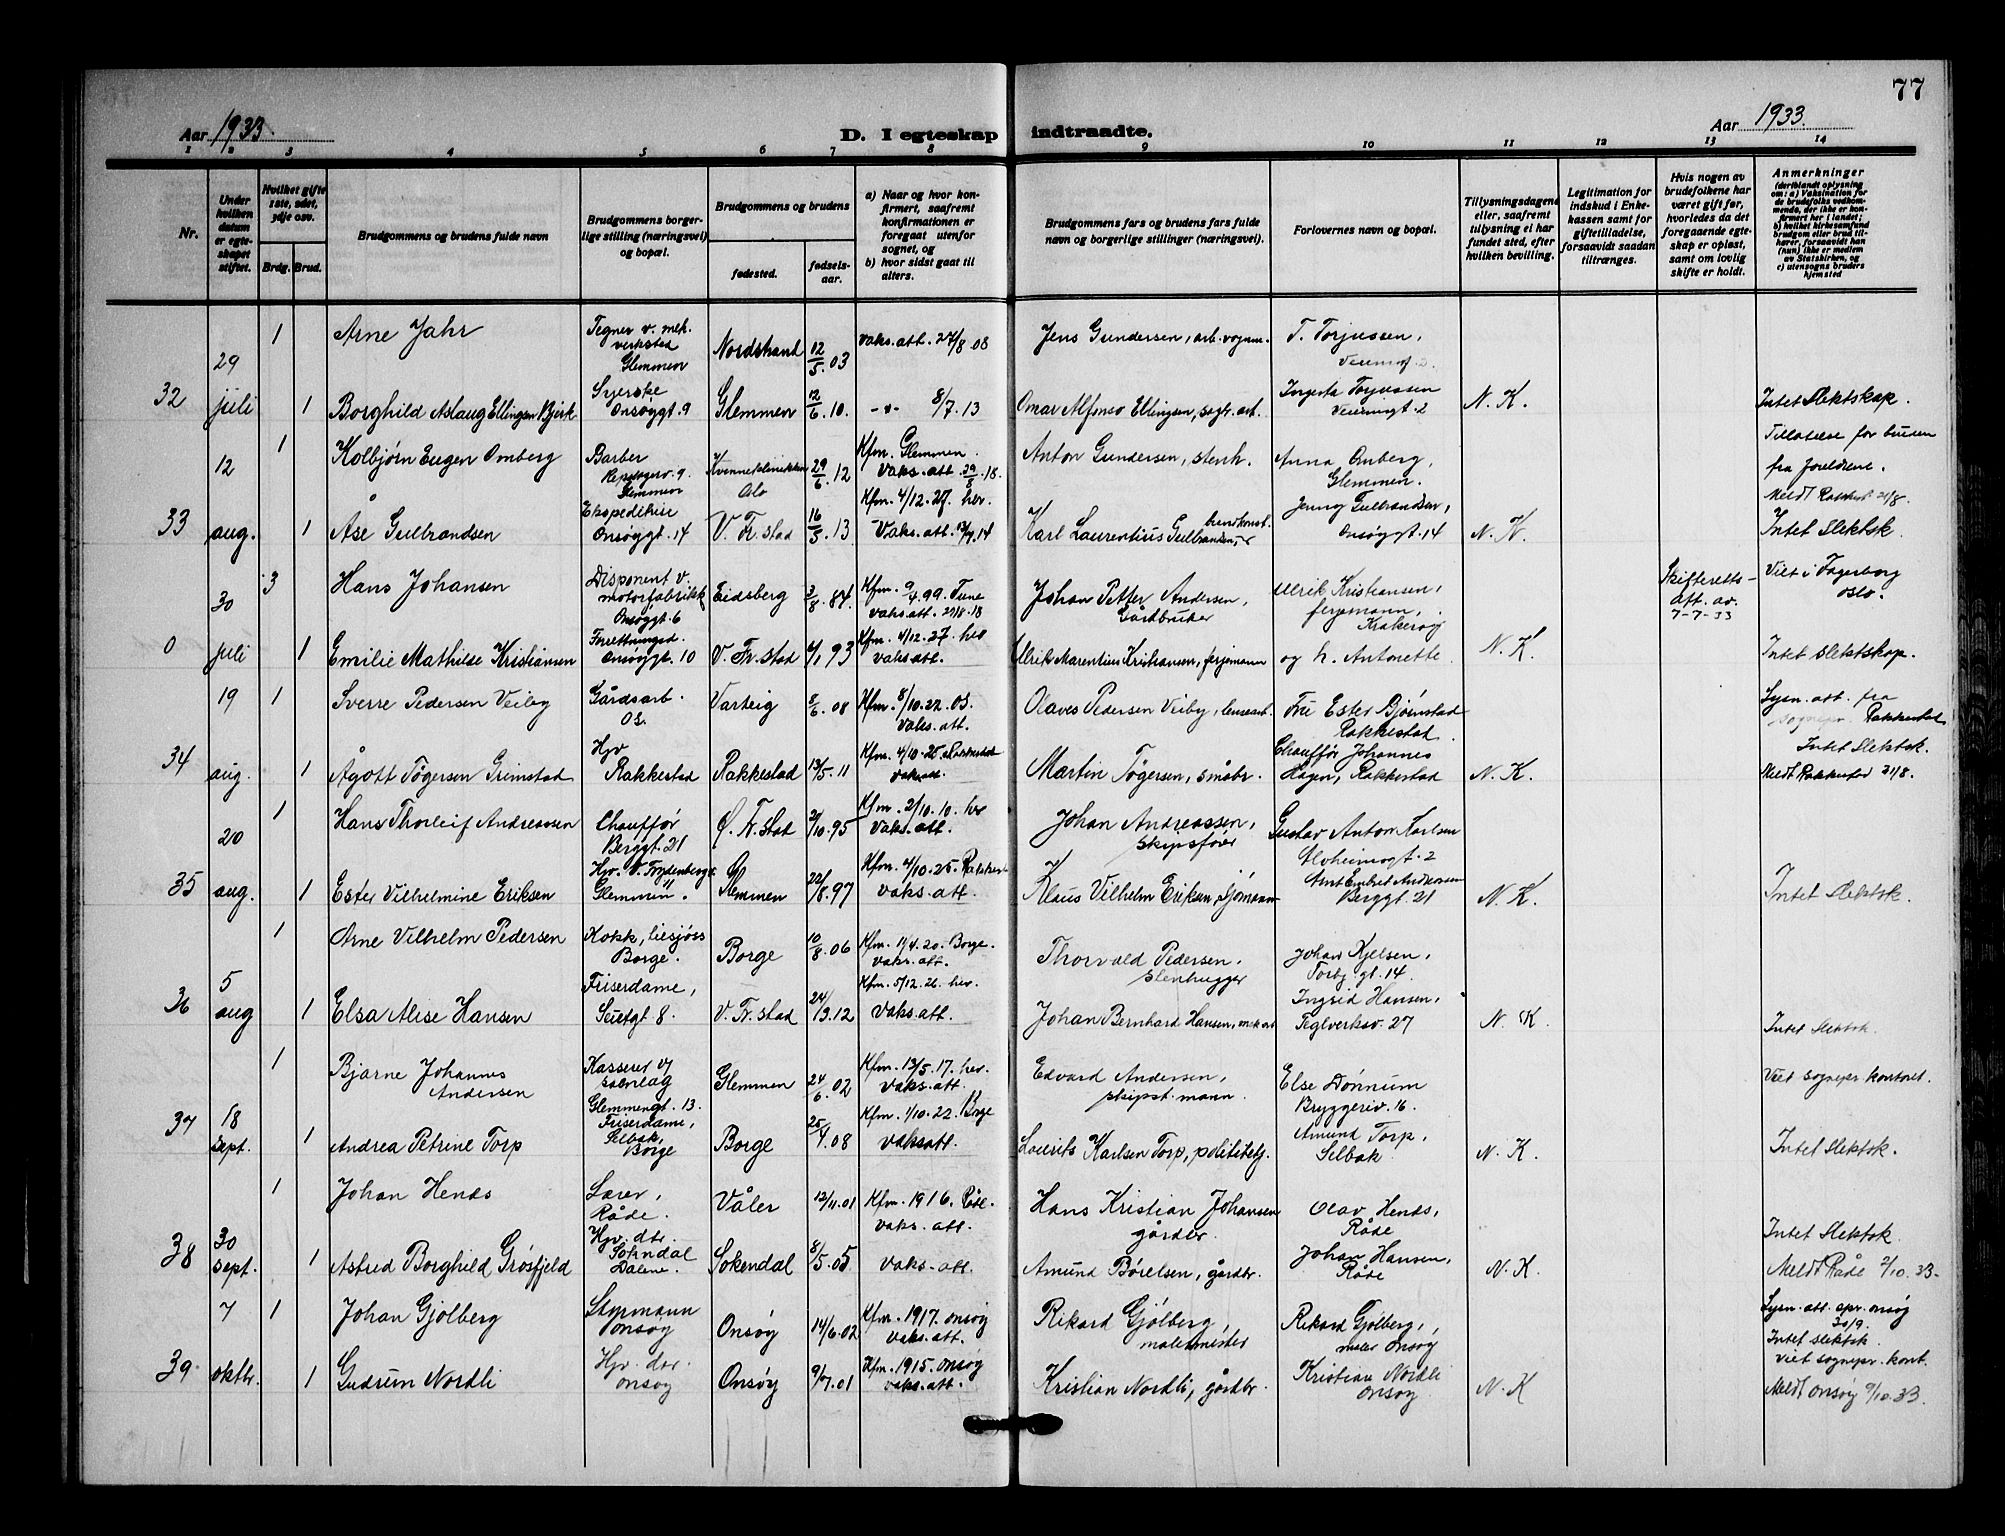 77
Aar 1933.
D. I egteskap indtraadte.
Aar 1933.
1 2 3 4 5 6 7 8 9 10 11 12 13 14
Nr.
Under hvilken datum er egteskapet stiftet.
Hvilket gifte 1ste, 2det, 3dje osv.
Brdg. Brud.
Brudgommens og brudens fulde navn
Brudgommens borgerlige stilling (næringsvei) og bopæl.
Brudgommens og brudens
fødested.
fødselsaar.
a) Naar og hvor konfirmert, saafremt konfirmationen er foregaat utenfor sognet, og
b) hvor sidst gaat til alters.
Brudgommens fars og brudens fars fulde navn og borgerlige stillinger (næringsvei).
Forlovernes navn og bopæl.
Tillysningsdagene eller, saafremt tillysning ei har fundet sted, efter hvilken bevilling.
Legitimation for indskud i Enkekassen samt for giftetilladelse, forsaavidt saadan tiltrænges.
Hvis nogen av brudefolkene har været gift før, hvorledes da det foregaaende egteskap er opløst, samt om lovlig skifte er holdt.
Anmerkninger
(deriblandt oplysning om: a) Vaksination for de brudefolks vedkommende, der ikke er konfirmert her i landet; b) hvilket kirkesamfund brudgom eller brud tilhører, forsaavidt han (hun) ikke er medlem av Statskirken, og c) utensogns bruders hjemsted
1 Arne Jahr Tegner v. mek. verksted Glemmen Nordstrand 12/5.03 vaks. att. 27/8 08 Jens Gundersen, arb. vognm. T. Torjussen,
32 29 juli 1 Borghild Aslaug Ellingsen Bjerk Syerske Onsøygt. 9 Glemmen 12/6.10. -"- 8/7.13 Omar Alfonso Ellingsen, sagb. arb. Ingerta Torjussen N. K. Intet slektskap.
1 Kolbjørn Eugen Omberg Barber Glemmen Kvinneklinikken Oslo 29/6.12 Kfm. Glemmen. Vaks. att. 29/8.18. Anton Gundersen, stenh. Anna Omberg, Glemmen. Tillatelse for bruden fra foreldrene. Meldt Rakkest. 21/8.
33 12 aug. 1 Åse Gulbrandsen Ekspeditrise Onsøygt. 14 V. Fr.stad 16/3.13 Kfm. 4/12.27. her. Vaks. att. 13/7.14 Karl Laurentius Gulbrandsen, Jenny Gulbrandsen, Onsøygt. 14 N. K. Intet slektsk.
3 Hans Johansen Disponent v. motorfabrikk Onsøygt. 6 Eidsberg 3/8.84. Kfm. 9/4.99. Tune vaks. att. 29/8.18 Johan Petter Andersen, Gårdbruker Ullrik Kristiansen, fergemann, Krakerøy Skifteretts-att. av. 7-7-33 Viet i Fagerborg Oslo.
0 30 juli 1 Emilie Mathilde Kristiansen Forretningsd. Onsøygt. 10 V. Fr.stad 4/1 93 Kfm. 4/12.27. her vaks. att. Ulrik Marentius Kristiansen, fergemann og h. Antonette N. K. Intet slektskap.
1 Sverre Pedersen Veiby Gårdsarb. Os. Varteig 8/6.08 Kfm. 8/10.22. Os. Vaks. att. Olaves Pedersen Veiby, lensearb. Fru Ester Bjørnstad Rakkestad. Lysn. att. fra sognepr. Rakkestad
34 19 aug. 1 Ågott Tøgersen Grimstad Hjv Rakkestad Rakkestad 13/5.11 Kfm. 4/10.25 Rakkestad vaks. att. Martin Tøgersen, småbr. Chauffør Johannes Hagen, Rakkestad N. K. Intet slektsk. Meldt Rakkestad 21/8.
1 Hans Thorleif Andreassen Chauffør Berggt. 21 Ø. Fr.stad 2/10.95 Kfm. 2/10.10. her Vaks. att. Johan Andreassen, skipsfører Gustav Anton Karlsen
35 20 aug. 1 Ester Vilhelmine Eriksen Hjv. Glemmen. Glemmen 22/8.97 Kfm. 4/10.25. vaks. att. Klaus Vilhelm Eriksen, sjømann Arnt Embret Andresen Berggt. 21 N. K. Intet slektsk.
1 Arne Vilhelm Pedersen Kokk, tilsjøss Borge. Borge 10/8.06 Kfm. 11/4.20. Borge. vaks. att. Thorvald Pedersen, stenhugger Johan Kjelsen, Torbj. gt. 14.
36 5 aug 1 Elsa Alise Hansen Friserdame, Seutgt 8. V. Fr. stad 24/9.12 Kfm. 5/12.26. her. vaks. att. Johan Bernhard Hansen, mek arb Ingrid Hansen, Teglverksv. 27 N. K. Intet slektsk.
1 Bjarne Johannes Andersen Kasserer v/ Glemmengt. 13. Glemmen 24/6.02 Kfm. 13/5.17. her. vaks. att. Edvard Andersen, skipst.mann. Else Dørnum Bryggeriv. 16. Viet sognepr. kontoret.
37 18 sept. 1 Andrea Petrine Torp Friserdame, Selbak, Borge Borge 25/4.08 Kfm. 1/10.22. Borge vaks att. Laurits Karlsen Torp, politibetj. Amund Torp, Selbak. N. K. Intet slektsk.
1 Johan Hends Lærer, Råde. Våler 12/11.01 Kfm. 1916. Råde. vaks. att. Hans Kristian Johansen gårdbr. Olav Hends, Råde
38 30 sept. 1 Astrid Borghild Grøsfjeld Hjv. dtr. Sokndal Dalene. Sokendal 8/5.05 vaks. att. Amund Børelsen, gårdbr. Johan Hansen, Råde N. K. Intet slektsk. Meldt Råde 2/10.33.
1 Johan Gjølberg Styrmann Onsøy Onsøy 14/6.02 Kfm. 1917. Onsøy vaks. att. Rikard Gjølberg, malermester Rikard Gjølberg, maler Onsøy Lysn. att. spr. Onsøy 30/9. Intet slektsk. Viet sognepr. kont.
39 7 oktbr. 1 Gudrun Nordli Hjv. dtr. Onsøy Onsøy 9/7.01 Kfm. 1915. Onsøy vaks. att. Kristian Nordli, gårdbr. Kristian Nordli Onsøy N. K Meldt Onsøy 9/10.33.